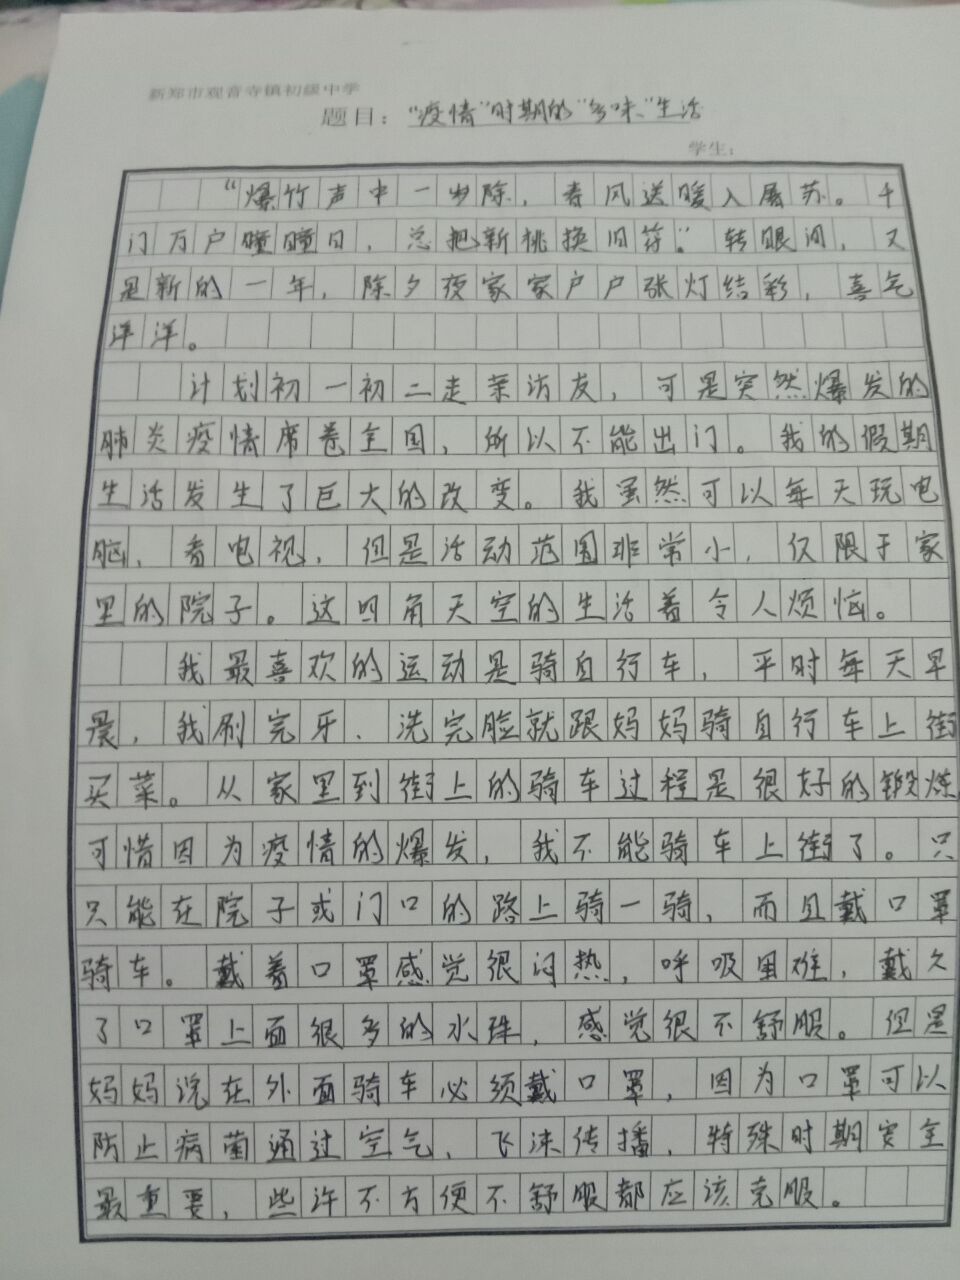 新郑市观音寺镇初级中学
题目："疫情"时期的"多味"生活
学生：
"爆竹声中一岁除，春风送暖入屠苏。千
门万户曈曈日，总把新桃换旧符。"转眼间，又
是新的一年，除夕夜家家户户张灯结彩，喜气
洋洋。
计划初一初二走亲访友，可是突然爆发的
肺炎疫情席卷全国，所以不能出门。我的假期
生活发生了巨大的改变。我虽然可以每天玩电
脑，看电视，但是活动范围非常小，仅限于家
里的院子。这四角天空的生活着令人烦恼。
我最喜欢的运动是骑自行车，平时每天早
晨，我刷完牙、洗完脸就跟妈妈骑自行车上街
买菜。从家里到街上的骑车过程是很好的锻炼
可惜因为疫情的爆发，我不能骑车上街了。只
只能在院子或门口的路上骑一骑，而且戴口罩
骑车。戴着口罩感觉很闷热，呼吸困难，戴久
了口罩上面很多的水珠，感觉很不舒服。但是
妈妈说在外面骑车必须戴口罩，因为口罩可以
防止病菌通过空气、飞沫传播，特殊时期安全
最重要，些许不方便不舒服都应该克服。